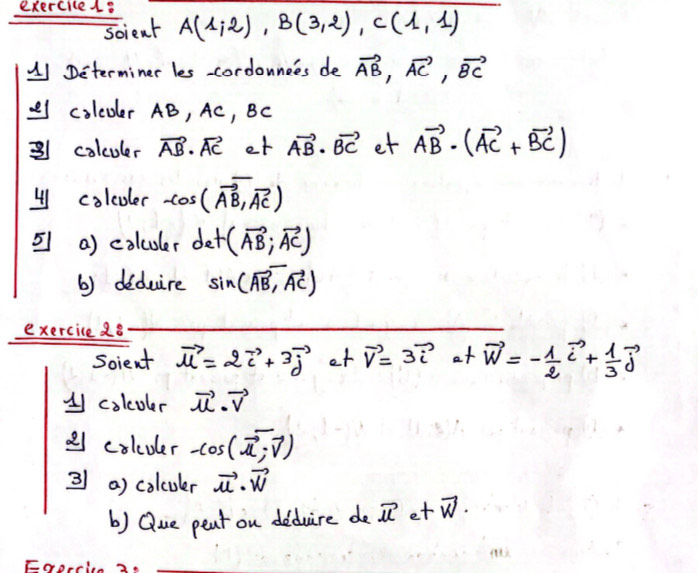 exercice 1:
Soient A(1;2), B(3,2), C(1,1)
1] Déterminer les cordonnées de A⃗B⃗, A⃗C⃗, B⃗C⃗
2] calculer AB, AC, BC
3] calculer A⃗B⃗.A⃗C⃗ et A⃗B⃗.B⃗C⃗ et A⃗B⃗.(A⃗C⃗ + B⃗C⃗)
4] calculer cos(A⃗B⃗,A⃗C⃗)
5] a) calculer det(A⃗B⃗;A⃗C⃗)
b) déduire sin(A⃗B⃗,A⃗C⃗)
exercice 2:
Soient u⃗ = 2i⃗ + 3j⃗ et V⃗ = 3i⃗ et W⃗ = -1/2 i⃗ + 1/3 j⃗
1] calculer u⃗.V⃗
2] calculer cos(u⃗;V⃗)
3] a) calculer u⃗.W⃗
b) Que peut on déduire de u⃗ et W⃗.
Exercice 3: